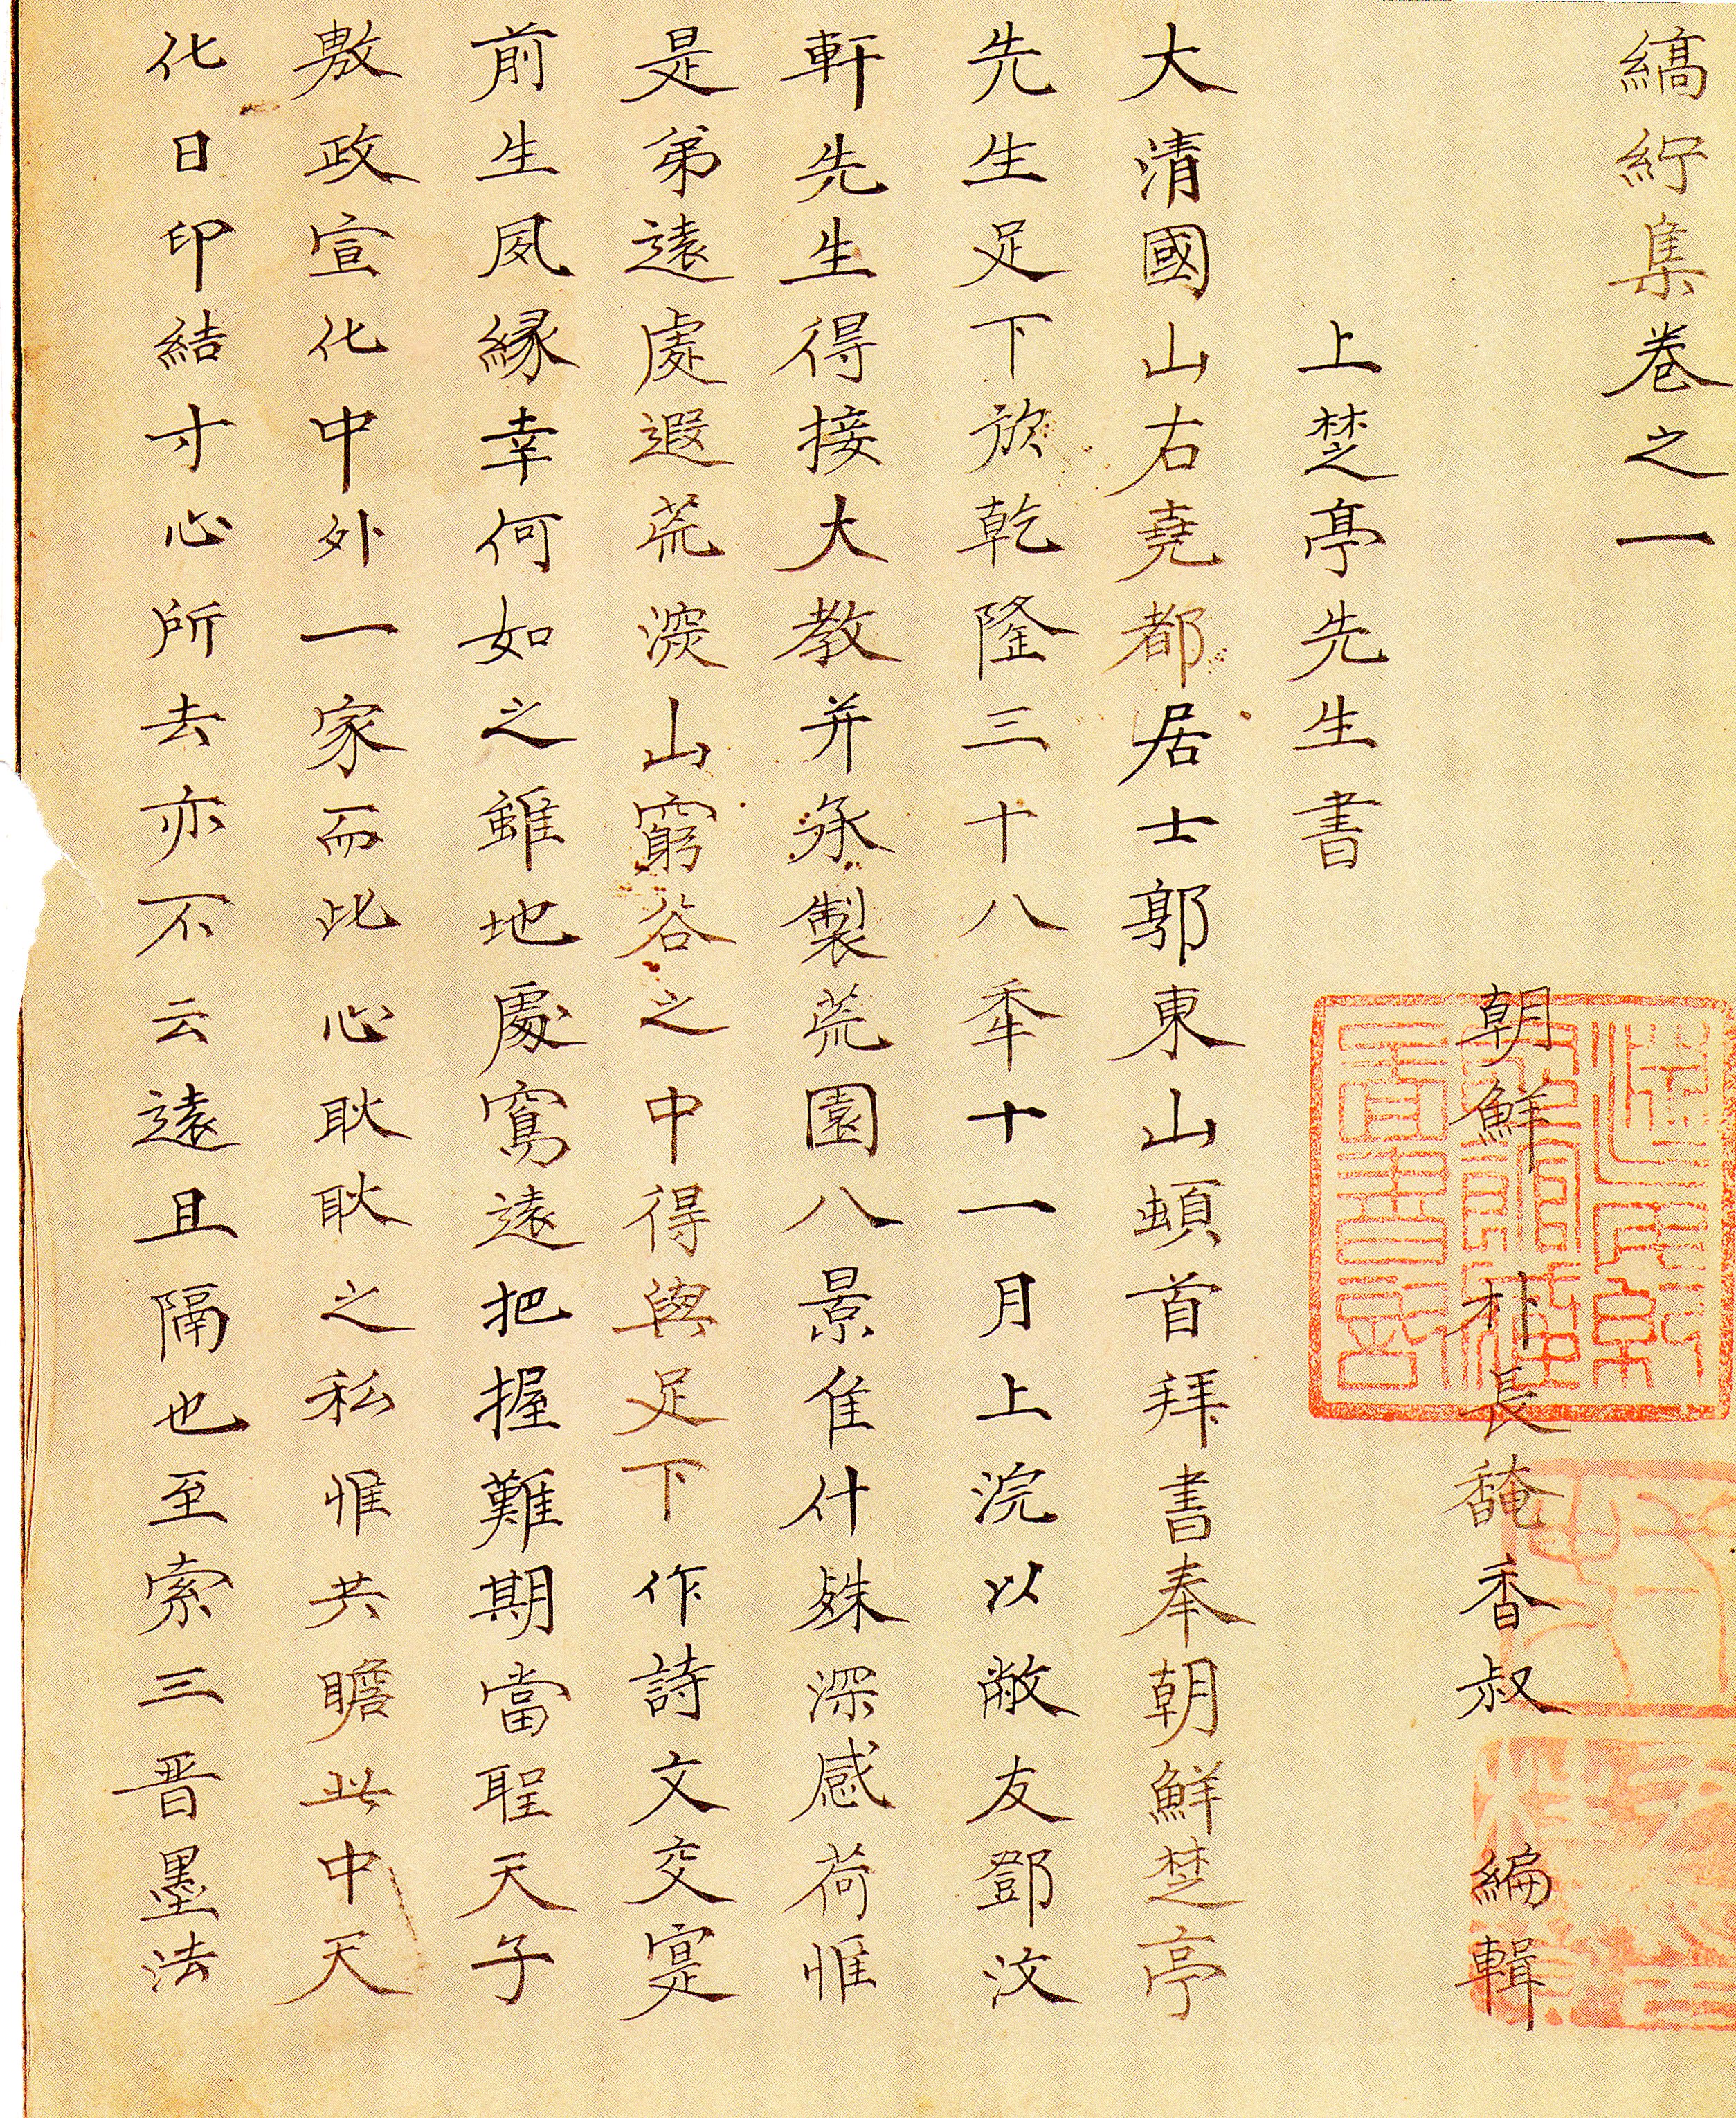 縞紵集卷之一
朝鮮 朴長馣香叔 編輯
上楚亭先生書
大清國山右堯都居士郭東山頓首拜書奉朝鮮楚亭
先生足下於乾隆三十八年十一月上浣以敝友鄧汶
軒先生得接大教并承製荒園八景佳什殊深感荷惟
是弟遠處遐荒深山窮谷之中得與足下作詩文交寔
前生夙緣幸何如之雖地處寫遠把握難期當聖天子
敷政宣化中外一家而此心耿耿之私惟共瞻此中天
化日印結寸心所去亦不云遠且隔也至索三晋墨法